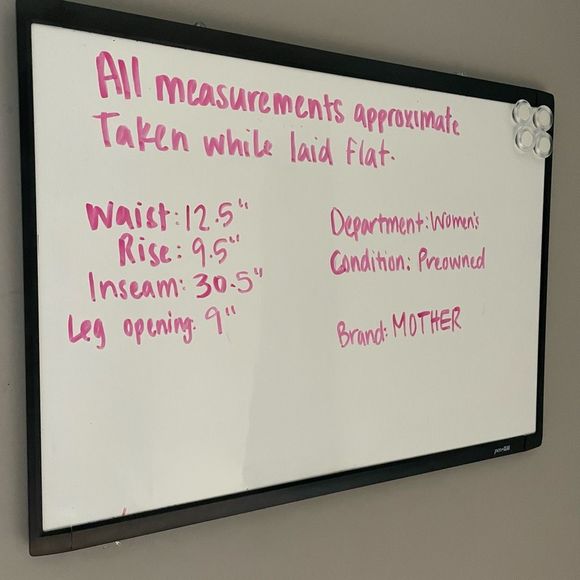 All measurements approximate
Taken while laid flat.
Waist: 12.5"
Rise: 9.5"
Inseam: 30.5"
Leg opening: 9"
Department: Women's
Condition: Preowned
Brand: MOTHER